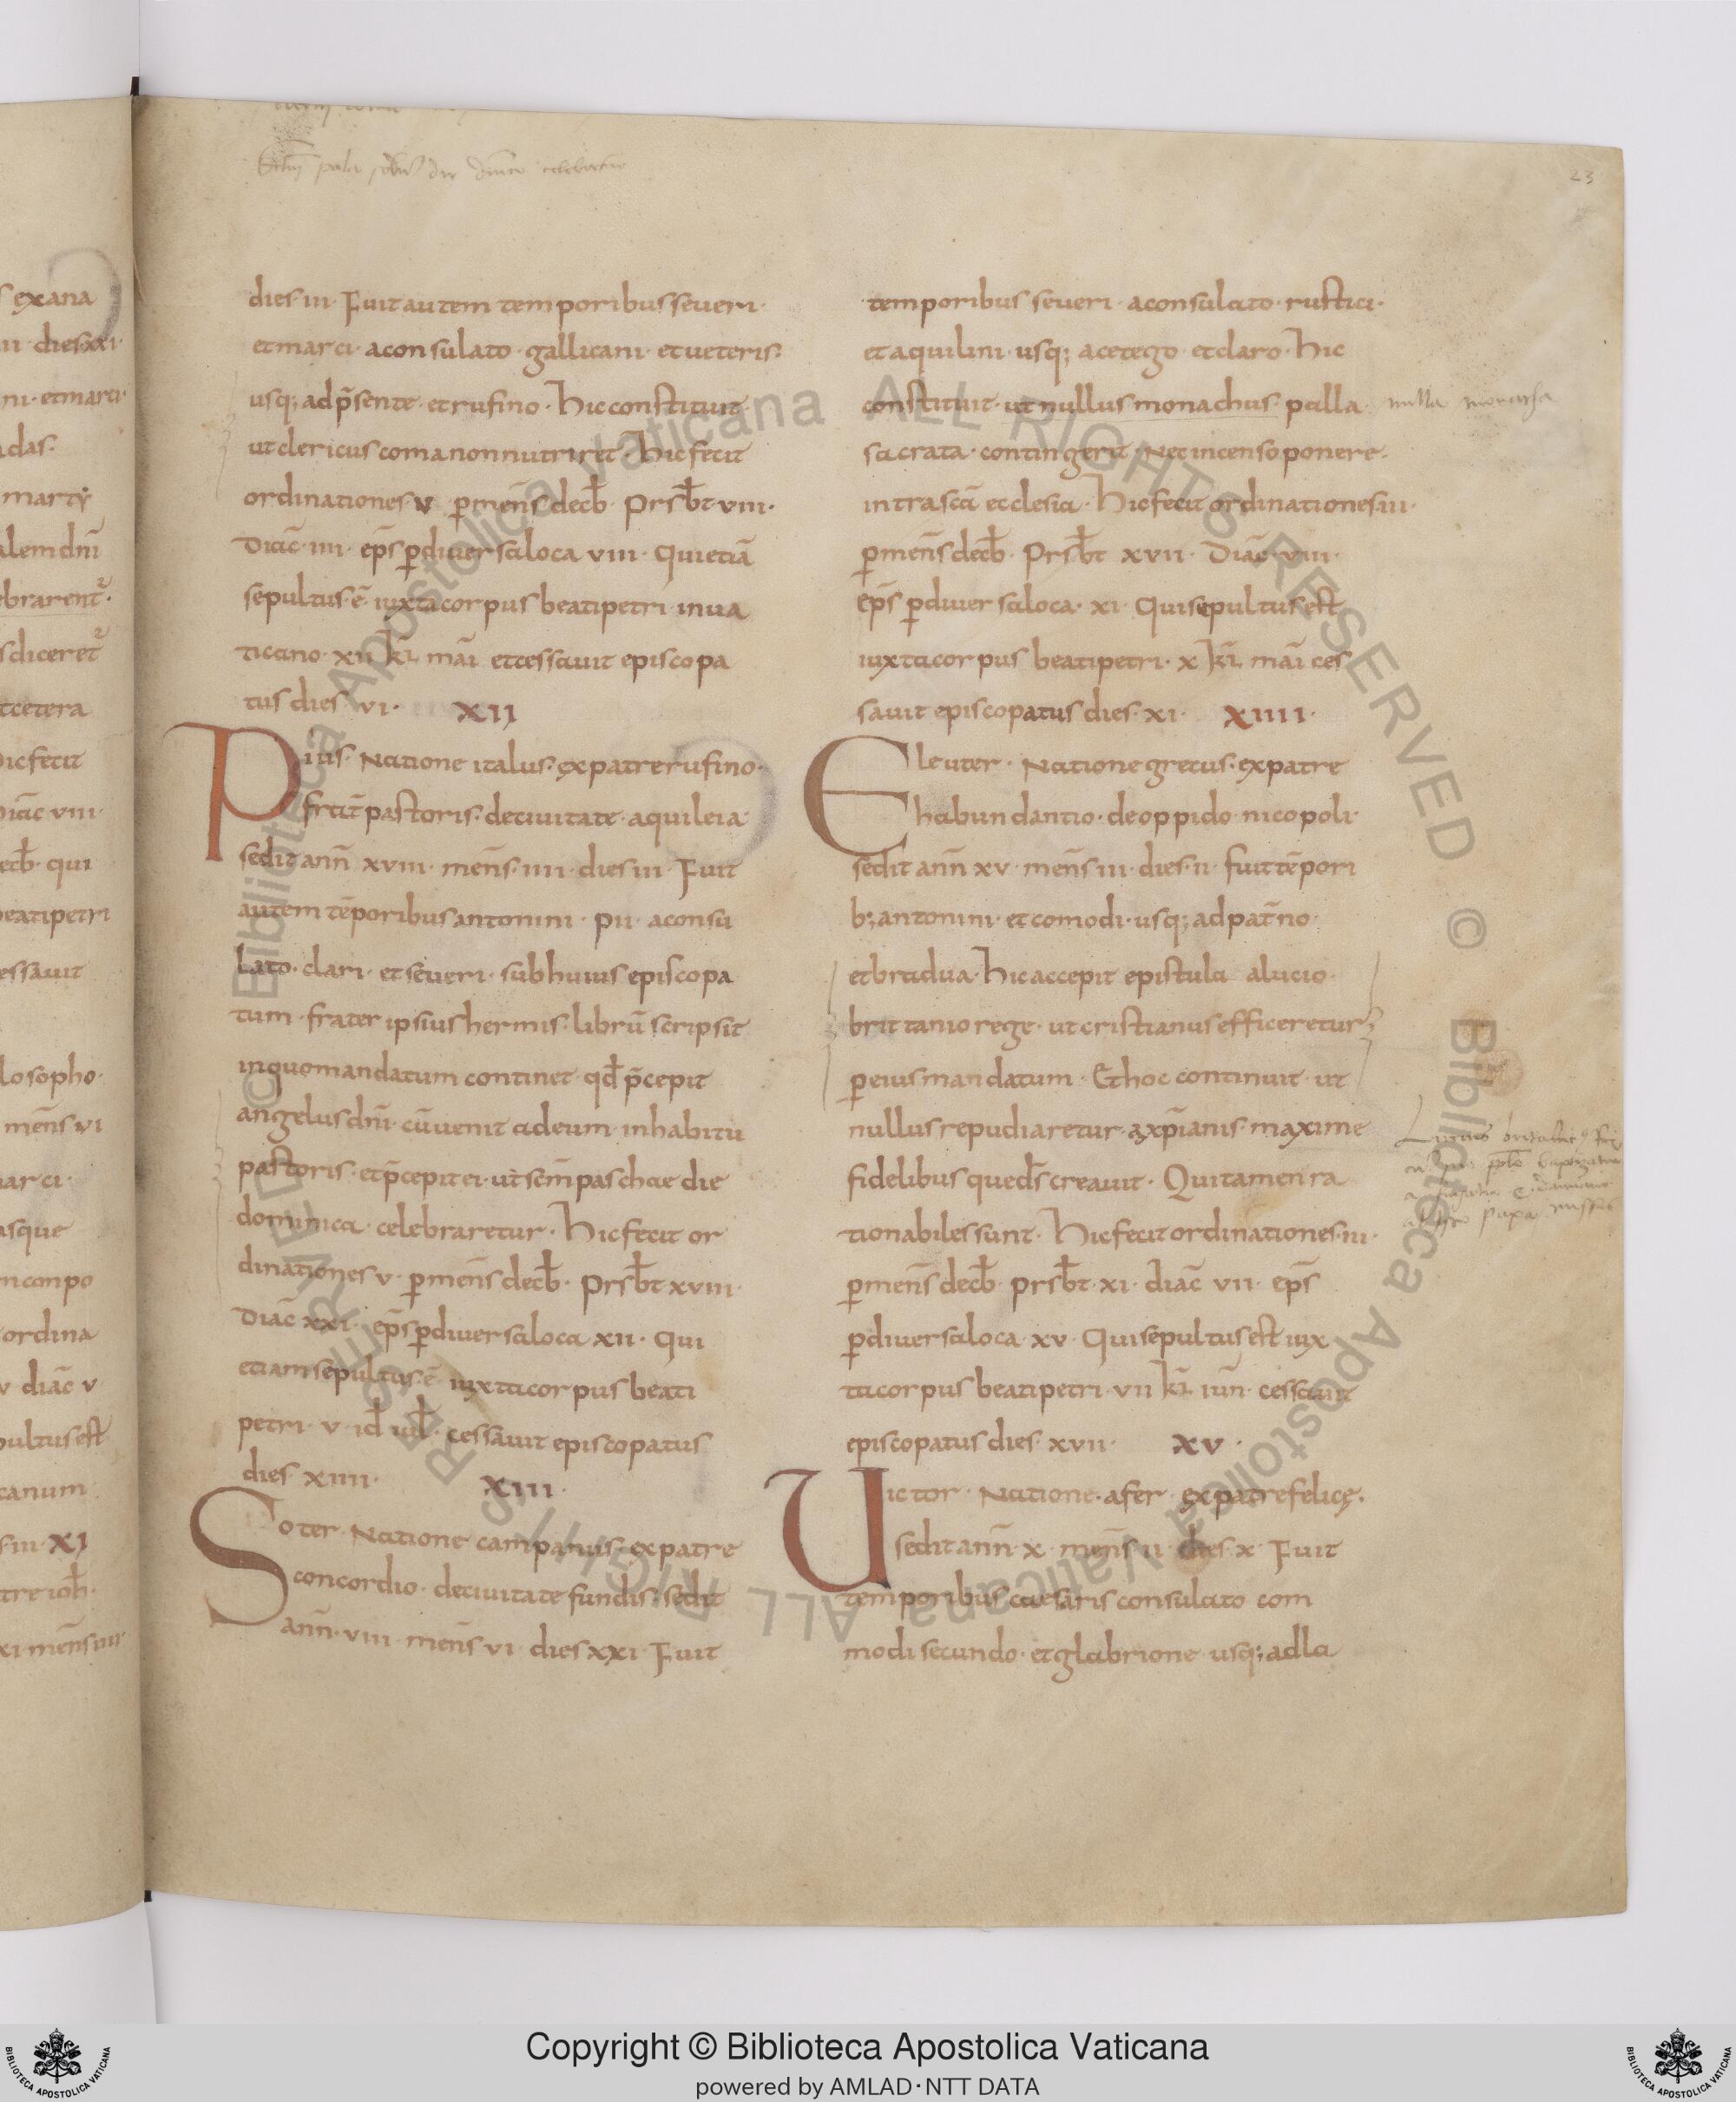 23
dies iii· Fuit autem temporibus seueri·
et marci· a consulato· gallicani· et ueteris·
usq; ad p̄sente· et rufino· Hic constituit·
ut clericus coma non nutriret· Hic fecit
ordinationes v p̄ mens̄ decb̄· prsb̄t viii·
Diac̄· iiii· ep̄s p̄ diuersa loca viii· Qui etiā
sepultus· ē· iuxta corpus beati petri· in ua
ticano· xii kl̄ mai̅ et cessauit episcopa
tus dies vi· XII
Pius· Natione italus· ex patre rufino·
frat̄ pastoris· de ciuitate· aquileia·
sedit ann̄ xviii· mens̄· iiii· dies iii· Fuit
autem tēporibus antonini· pii· a consu
lato· clari· et seueri· sub huius episcopa
tum· frater ipsius hermis· librū scripsit
in quo mandatum continet· qđ p̄cepit
angelus dn̄i· cū uenit ad eum· in habitu
pastoris· et p̄cepit ei· ut sc̄m paschae die
dominica· celebraretur· Hic fecit or
dinationes v· p̄ mens̄ decb̄· prsb̄t xviii·
Diac̄ xxi· ep̄s p̄ diuersa loca xii· Qui
etiam sepultus· ē iuxta corpus beati
petri· v· id̄ iul̄· cessauit episcopatus
dies xiiii· XIII·
Soter· Natione campanus· ex patre
concordio· de ciuitate fundis· sedit
ann̄· viii· mens̄ vi· dies xxi· Fuit
temporibus seueri· a consulato· rustici·
et aquilini· usq; a cetego· et claro· Hic
constituit· ut nullus monachus· palla
sacrata· contingerit· Nec incenso ponere·
intra sc̄a ecclesia· Hic fecit ordinationes iii·
p̄ mens̄ decb̄· Prsb̄t xvii· Diac̄· viii·
ep̄s p̄ diuersa loca· xi· Qui sepultus est
iuxta corpus beati petri· x kl̄ mai̅ ces
sauit episcopatus dies· xi· XIIII·
Eleuter· Natione grecus· ex patre
habundantio· de oppido· nicopoli·
sedit ann̄ xv· mens̄ iii· dies· ii· fuit tēpori
b; antonini· et comodi· usq; ad pat̄no·
et bradua· Hic accepit epistula a lucio·
brittanio rege· ut cristianus efficeretur
p̄ eius mandatum· Et hoc continuit· ut
nullus repudiaretur· a xp̄ianis· maxime
fidelibus que ds̄ creauit· Qui tamen ra
tionabiles sunt· Hic fecit ordinationes· iii·
p̄ mens̄ decb̄· prsb̄t· xi· diac̄ vii· ep̄s
p̄ diuersa loca· xv· Qui sepultus est iux
ta corpus beati petri· vii kl̄ iun̄· cessauit
episcopatus dies· xvii· XV·
Uictor· Natione· afer· ex patre felice·
sedit ann̄· x· mens̄ ii· dies· x· Fuit
temporibus caesaris consulato com
modi secundo· et glabrione usq; ad la
Copyright © Biblioteca Apostolica Vaticana
powered by AMLAD·NTT DATA
© Biblioteca Apostolica Vaticana ALL RIGHTS RESERVED
© Biblioteca Apostolica Vaticana ALL RIGHTS RESERVED
BIBLIOTECA APOSTOLICA VATICANA
BIBLIOTECA APOSTOLICA VATICANA